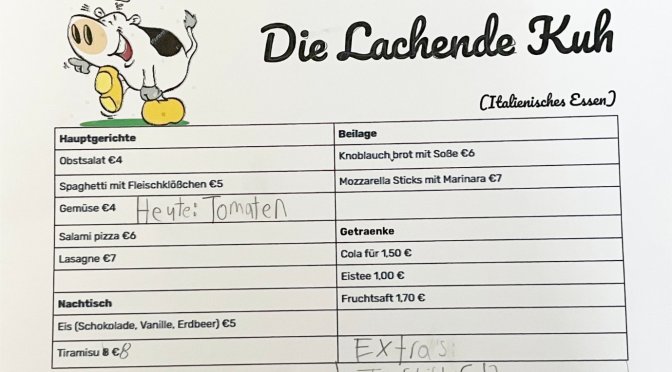 Die Lachende Kuh
(Italienisches Essen)
Hauptgerichte
Obstsalat €4
Spaghetti mit Fleischklößchen €5
Gemüse €4 Heute: Tomaten
Salami pizza €6
Lasagne €7
Nachtisch
Eis (Schokolade, Vanille, Erdbeer) €5
Tiramisu 8 €8
Beilage
Knoblauch brot mit Soße €6
Mozzarella Sticks mit Marinara €7
Getraenke
Cola für 1,50 €
Eistee 1,00 €
Fruchtsaft 1,70 €
Extras